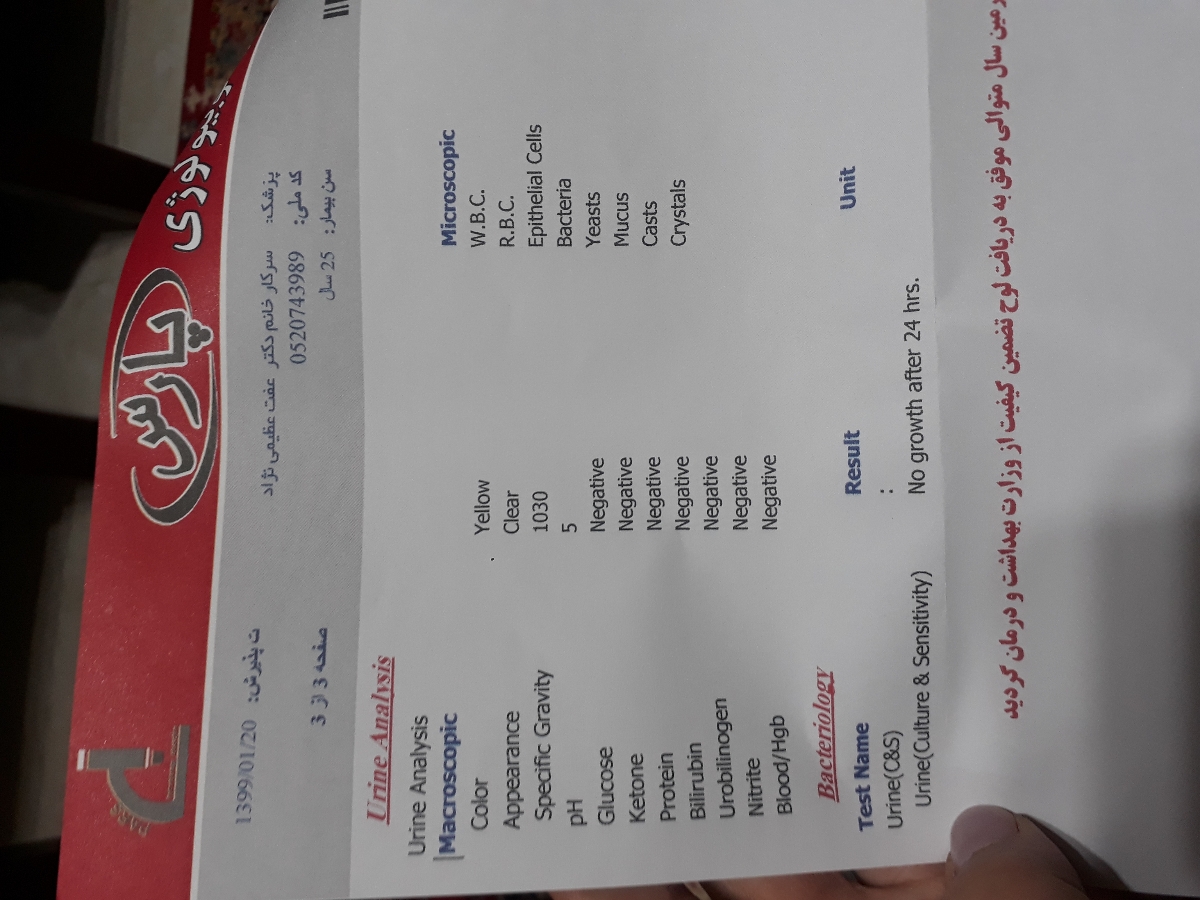 پارس
PARS
ت پذیرش: 1399/01/20
پزشک: سرکار خانم دکتر عفت عظیمی نژاد
کد ملی: 0520743989
صفحه 3 از 3
سن بیمار: 25 سال
Urine Analysis
Urine Analysis
Macroscopic Microscopic
Color Yellow W.B.C.
Appearance Clear R.B.C.
Specific Gravity 1030 Epithelial Cells
pH 5 Bacteria
Glucose Negative Yeasts
Ketone Negative Mucus
Protein Negative Casts
Bilirubin Negative Crystals
Urobilinogen Negative
Nitrite Negative
Blood/Hgb Negative
Bacteriology
Test Name Result Unit
Urine(C&S) :
Urine(Culture & Sensitivity) No growth after 24 hrs.
سال متوالی موفق به دریافت لوح تضمین کیفیت از وزارت بهداشت و درمان گردید